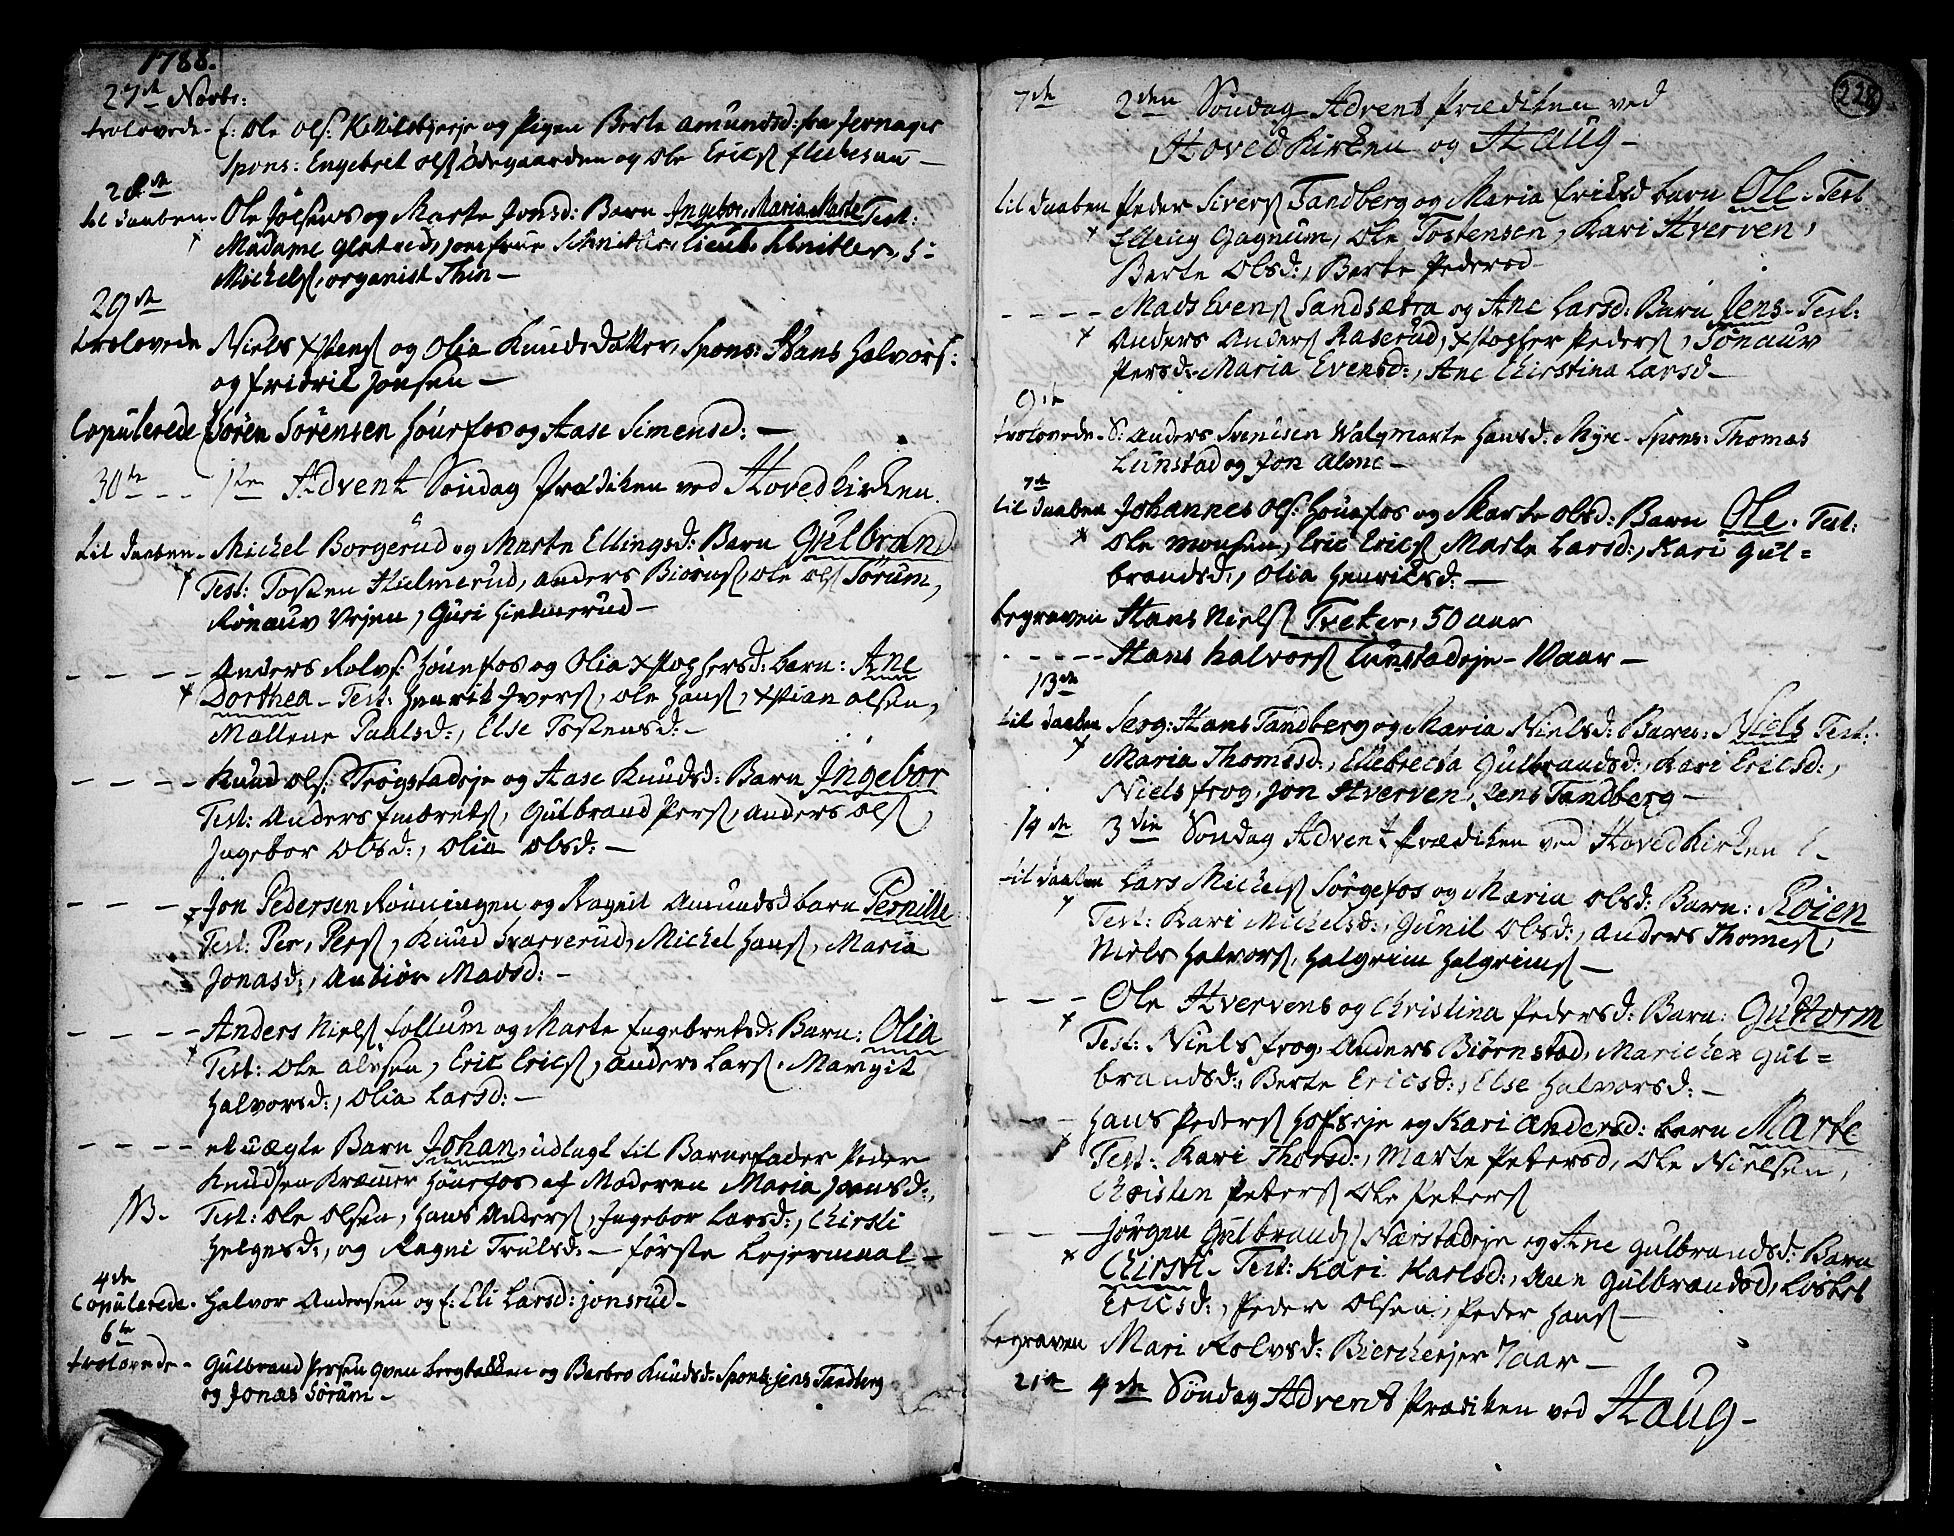 1788.
27de Novbr:
trolovede - E: Ole Ols: og Pigen Berte Amundsd: fra Jernager
Spons: Engebret Ols Ødegaarden og Ole Erics
28de
til daaben - Ole Jølsens og Marte Jonsd: Barn Ingebor Maria Marte Test:
Madame jomfrue Schnitler,
Michels, organist Thin -
29de
trolovede Niels Xstens og Olia Knudsdatter, Spons: Hans Halvors:
og Fridric Jonsen -
Copulerede Sören Sörensen Hönefos og Aase Simensd: -
30te - - 1ste Advent Söndag Prædiken ved Hovedkirken.
til daaben - Michel Borgerud og Marte Ellingsd: Barn Gulbrand
Test: Tosten Hulmerud, Anders Biörns, Ole Ols Sörum,
Rönauv Vejen, Guri Hielmerud -
- - - - Anders Rolvs: Hönefos og Olia Xstophersd: barn: Ane
Dorthea - Test: Henrik Ivers, Ole Hans, Xstian Olsen,
Mallene Paulsd:, Else Tostensd: -
- - - - Knud Ols: Trögstadeje og Aase Knudsd: Barn Ingebor
Test: Anders Embrets, Gulbrand Pers, Anders Ols,
Ingebor Olsd:, Olia Olsd: -
- - - - Jon Pedersen Rönningen og Ragnil Amundsd barn Pernille
Test: Per Pers, Knud Svarverud, Michel Hans, Maria
Jonasd:, Anbiör Madsd: -
- - - - Anders Niels Follum og Marte Engebretsd: Barn: Olia
Test: Ole Olsen, Eric Erics, Anders Lars, Margit
Halvorsd:, Olia Larsd: -
- - - - et uægte Barn Johan, udlagt til Barnefader Peder
Knudsen Kræmmer Hönefos af Moderen Maria Jonsd:,
NB. Test: Ole Olsen, Hans Anders, Ingebor Larsd:, Chirsti
Helgesd:, og Ragni Trulsd: - förste Lejermaal -
4de
Copulerede - Halvor Andersen og E: Eli Larsd: Jonsrud -
6te
trolovede - Gulbrand Persen Bergbakken og Barbro Knudsd: Spons: Jens Tandberg
og Jonas Sörum -
228
7de 2den Söndag Advent Prædiken ved
Hovedkirken og Haug -
til daaben Peder Sivers Tandberg og Maria Ericksd barn Ole. Test
Elling Gagnum, Ole Tostensen, Kari Hverven,
Berte Olsd:, Berte Pedersd -
- - - - Mads Evens Sandsætra og Ane Larsd: Barn Jens - Test:
Anders Anders Raserud, Xstopher Peders, Rönauv
Persd: Maria Evensd:, Ane Chirstina Larsd -
9de
trolovede - S: Anders Svendsen Marte Hansd: Myre - Spons: Thomas
Lunstad og Jon Alme -
7de
til daaben Johannes Ols: Hönefos og Marte Olsd: Barn Ole. Test:
Ole Monsen, Eric Erics Marte Larsd:, Kari Gul=
brandsd:, Olia Henriksd: -
begraven Hans Niels Treker, 50 aar
- - - - Hans Halvors Lunstadeje - 10 aar -
13de
til daaben Serg: Hans Tandberg og Maria Nielsd: Barn: Niels Test:
Maria Thomesd:, Ellebrecta Gulbrandsd:, Kari Ericsd:,
Niels Frog, Jon Hverven, Jens Tandberg -
14de 3die Söndag Advent Prædiken ved Hovedkirken
til daaben Lars Michels Sörgefos og Maria Olsd: Barn: Röien
Test: Kari Michelsd:, Gunil Olsd:, Anders Thomes,
Niels Halvors, Halgrim Halgrims -
- - - Ole Hvervens og Christina Pedersd: Barn: Guttorm
Test: Niels Frog, Anders Biörnstad, Marichen Gul=
brandsd:, Berte Ericsd:, Else Halvorsd: -
- - - Hans Peders Hofseje og Kari Andersd: barn Marte
Test: Kari Thorsd:, Marte Petersd, Ole Nielsen,
Christen Peters Ole Peters
- - - Jörgen Gulbrands Nærstadeje og Ane Gulbrandsd: Barn
Chirsti - Test: Kari Karlsd:, Ane Gulbrandsd, Losbet
Ericsd:, Peder Olsen, Peder Hans -
begraven Mari Rolvsd: Biercheejer 7 aar -
21de 4de Söndag Advent Prædiken ved Haug -